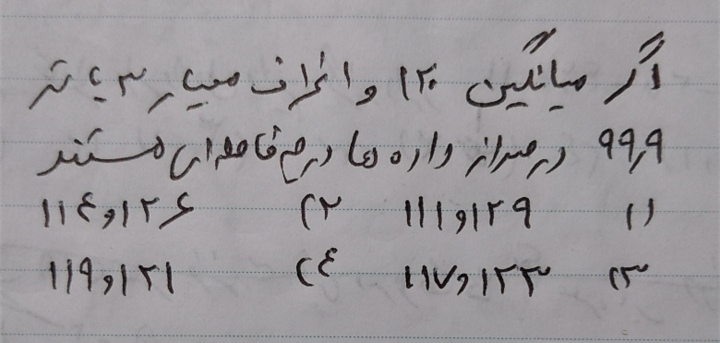 اگر میانگین ۱۲۰ و انحراف معیار ۳ باشد
۹۹٫۹ درصد از داده ها در چه فاصله ای هستند
۱) ۱۲۹ و ۱۱۱ ۲) ۱۲۶ و ۱۱۴
۳) ۱۲۳ و ۱۱۷ ۴) ۱۲۱ و ۱۱۹